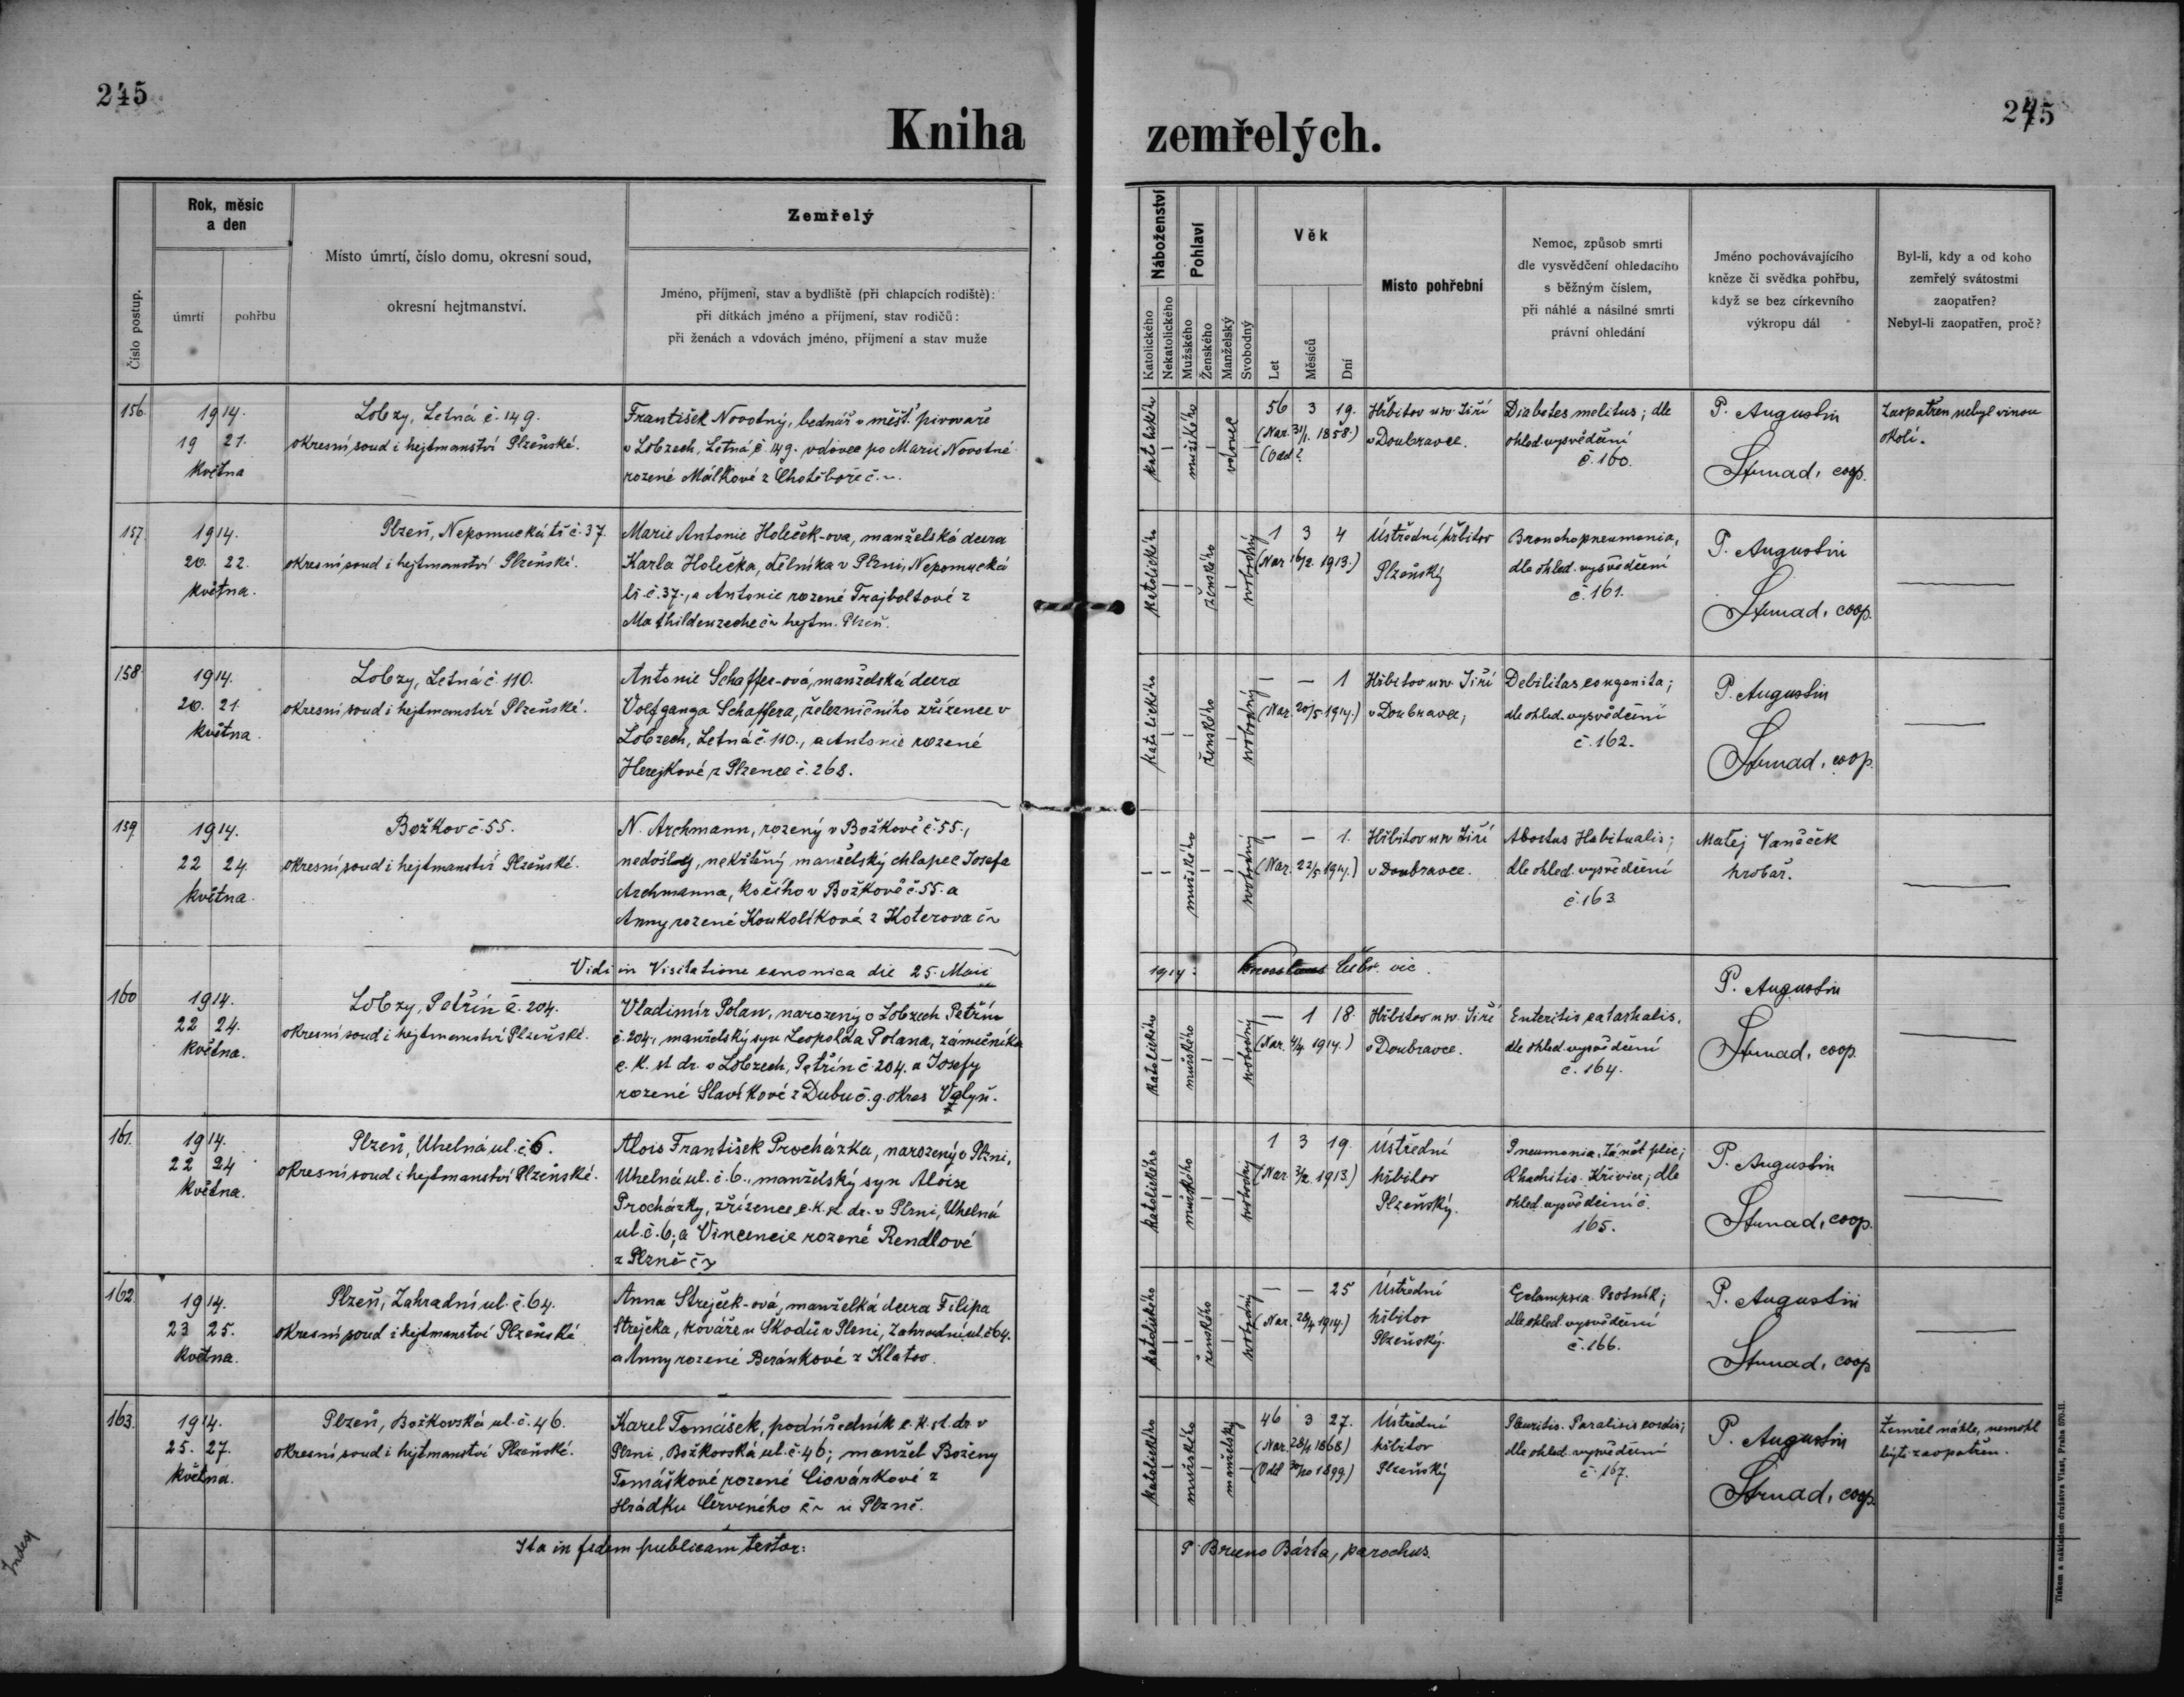 245
245
Kniha zemřelých.
Číslo postup.
Rok, měsíc
a den
úmrtí
pohřbu
Místo úmrtí, číslo domu, okresní soud,
okresní hejtmanství.
Zemřelý
Jméno, příjmení, stav a bydliště (při chlapcích rodiště):
při dítkách jméno a příjmení, stav rodičů:
při ženách a vdovách jméno, příjmení a stav muže
Náboženství
Katolického
Nekatolického
Pohlaví
Mužského
Ženského
Manželský
Svobodný
Věk
Let
Měsíců
Dní
Místo pohřební
Nemoc, způsob smrti
dle vysvědčení ohledacího
s běžným číslem,
při náhlé a násilné smrti
právní ohledání
Jméno pochovávajícího
kněze či svědka pohřbu,
když se bez církevního
výkropu dál
Byl-li, kdy a od koho
zemřelý svátostmi
zaopatřen?
Nebyl-li zaopatřen, proč?
156.
1914.
19 21.
května
Lobzy, Letná č. 149.
okresní soud i hejtmanství Plzeňské.
František Novotný, bednář v měšť. pivovaře
v Lobzech, Letná č. 149. vdovec po Marii Novotné
rozené Málkové z Chotěboře č. ~.
katolického
mužského
vdovec
56 3 19.
(Nar. 31/1. 1858.)
(Odd ?
Hřbitov u sv. Jiří
v Doubravce.
Diabetes melitus; dle
ohled. vysvědčení
č. 160.
P. Augustin
Strnad, coop.
Zaopatřen nebyl vinou
okolí.
157.
1914.
20. 22.
května.
Plzeň, Nepomucká tř. č. 37.
okresní soud i hejtmanství Plzeňské.
Marie Antonie Holeček-ova, manželská dcera
Karla Holečka, dělníka v Plzni, Nepomucká
tř. č. 37., a Antonie rozené Trajboltové z
Mathildenzeche č ~ hejtm. Plzeň.
katolického
ženského
svobodný
1 3 4
(Nar 16/2. 1913.)
Ústřední hřbitov
Plzeňský
Bronchopneumonia,
dle ohled. vysvědčení
č. 161.
P. Augustin
Strnad, coop.
158.
1914.
20. 21.
května.
Lobzy, Letná č. 110.
okresní soud i hejtmanství Plzeňské.
Antonie Schaffer-ová, manželská dcera
Volfganga Schaffera, železničního zřízence v
Lobzech, Letná č. 110., a Antonie rozené
Herejkové z Plzence č. 268.
katolického
ženského
svobodný
— — 1
(Nar. 20/5 1914.)
Hřbitov u sv. Jiří
v Doubravce,
Debilitas congenita;
dle ohled. vysvědčení
č. 162.
P. Augustin
Strnad, coop.
159.
1914.
22 24.
května.
Božkov č. 55.
okresní soud i hejtmanství Plzeňské.
N. Archmann, rozený v Božkově č. 55.,
nedošlý, nekřtěný manželský chlapec Josefa
Archmanna, kočího v Božkově č. 55. a
Anny rozené Koukolíkové z Koterova č ~
mužského
svobodný
— — 1.
(Nar. 22/5 1914.)
Hřbitov u sv Jiří
v Doubravce.
Abortus Habitualis;
dle ohled. vysvědčení
č. 163
Matěj Vaněček
hrobař.
Vidi in Visitatione canonica die 25. Maii
1914.
vic.
160
1914.
22 24.
května.
Lobzy, Petřín č. 204.
okresní soud i hejtmanství Plzeňské.
Vladimír Polan, narozený v Lobzech Petřín
č. 204., manželský syn Leopolda Polana, zámečníka
c. k. st. dr. v Lobzech, Petřín č. 204. a Josefy
rozené Slavíkové z Dubu č. 9. okres Volyň.
katolického
mužského
svobodný
— 1 18.
(Nar. 4/4 1914.)
Hřbitov u sv. Jiří
v Doubravce.
Enteritis catarhalis,
dle ohled. vysvědčení
č. 164.
P. Augustin
Strnad, coop.
161.
1914.
22 24
května.
Plzeň, Uhelná ul. č. 6.
okresní soud i hejtmanství Plzeňské.
Alois František Procházka, narozený v Plzni,
Uhelná ul. č. 6., manželský syn Aloise
Procházky, zřízence c. k. st. dr. v Plzni, Uhelná
ul. č. 6; a Vincencie rozené Rendlové
z Plzně č ~
katolického
mužského
svobodný
1 3 19.
(Nar. 3/2. 1913.)
Ústřední
hřbitov
Plzeňský.
Pneumonia. Zánět plic;
Rhachitis. Křivice; dle
ohled. vysvědčení č.
165.
P. Augustin
Strnad, coop.
162.
1914.
23 25.
května.
Plzeň, Zahradní ul. č. 64.
okresní soud i hejtmanství Plzeňské
Anna Strejček-ová, manželká dcera Filipa
Strejčka, kováře u Škodů v Plzni, Zahradní ul. č. 64.
a Anny rozené Beránkové z Klatov.
katolického
ženského
svobodný
— — 25
(Nar. 28/4 1914.)
Ústřední
hřbitov
Plzeňský.
Eclampsia. Psotník;
dle ohled. vysvědčení
č. 166.
P. Augustin
Strnad, coop
163.
1914.
25. 27.
května.
Plzeň, Božkovská ul. č. 46.
okresní soud i hejtmanství Plzeňské.
Karel Tomášek, podúředník c. k. st. dr. v
Plzni, Božkovská ul. č. 46; manžel Boženy
Tomáškové rozené Ciovárkové z
Hrádku Červeného č ~ u Plzně.
katolického
mužského
manželský
46 3 27.
(Nar. 28/1 1868)
(Odd 30/10 1899)
Ústřední
hřbitov
Plzeňský
Pleuritis. Paralisis cordis;
dle ohled. vysvědčení
č. 167.
P. Augustin
Strnad, coop.
Zemřel náhle, nemohl
býti zaopatřen.
Ita in fidem publicam testor:
P. Bruno Bárta, parochus.
Index
Tiskem a nákladem družstva Vlast, Praha 570-II.